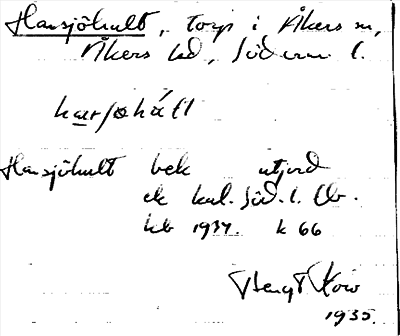 Harsjöhult, torp i Åkers sn,
Åkers hd, Söderm. l.
harsøhátl
Harsjöhult bek utjord
ek kal. Söd. l.
1934. k 66
Bengt
1935.